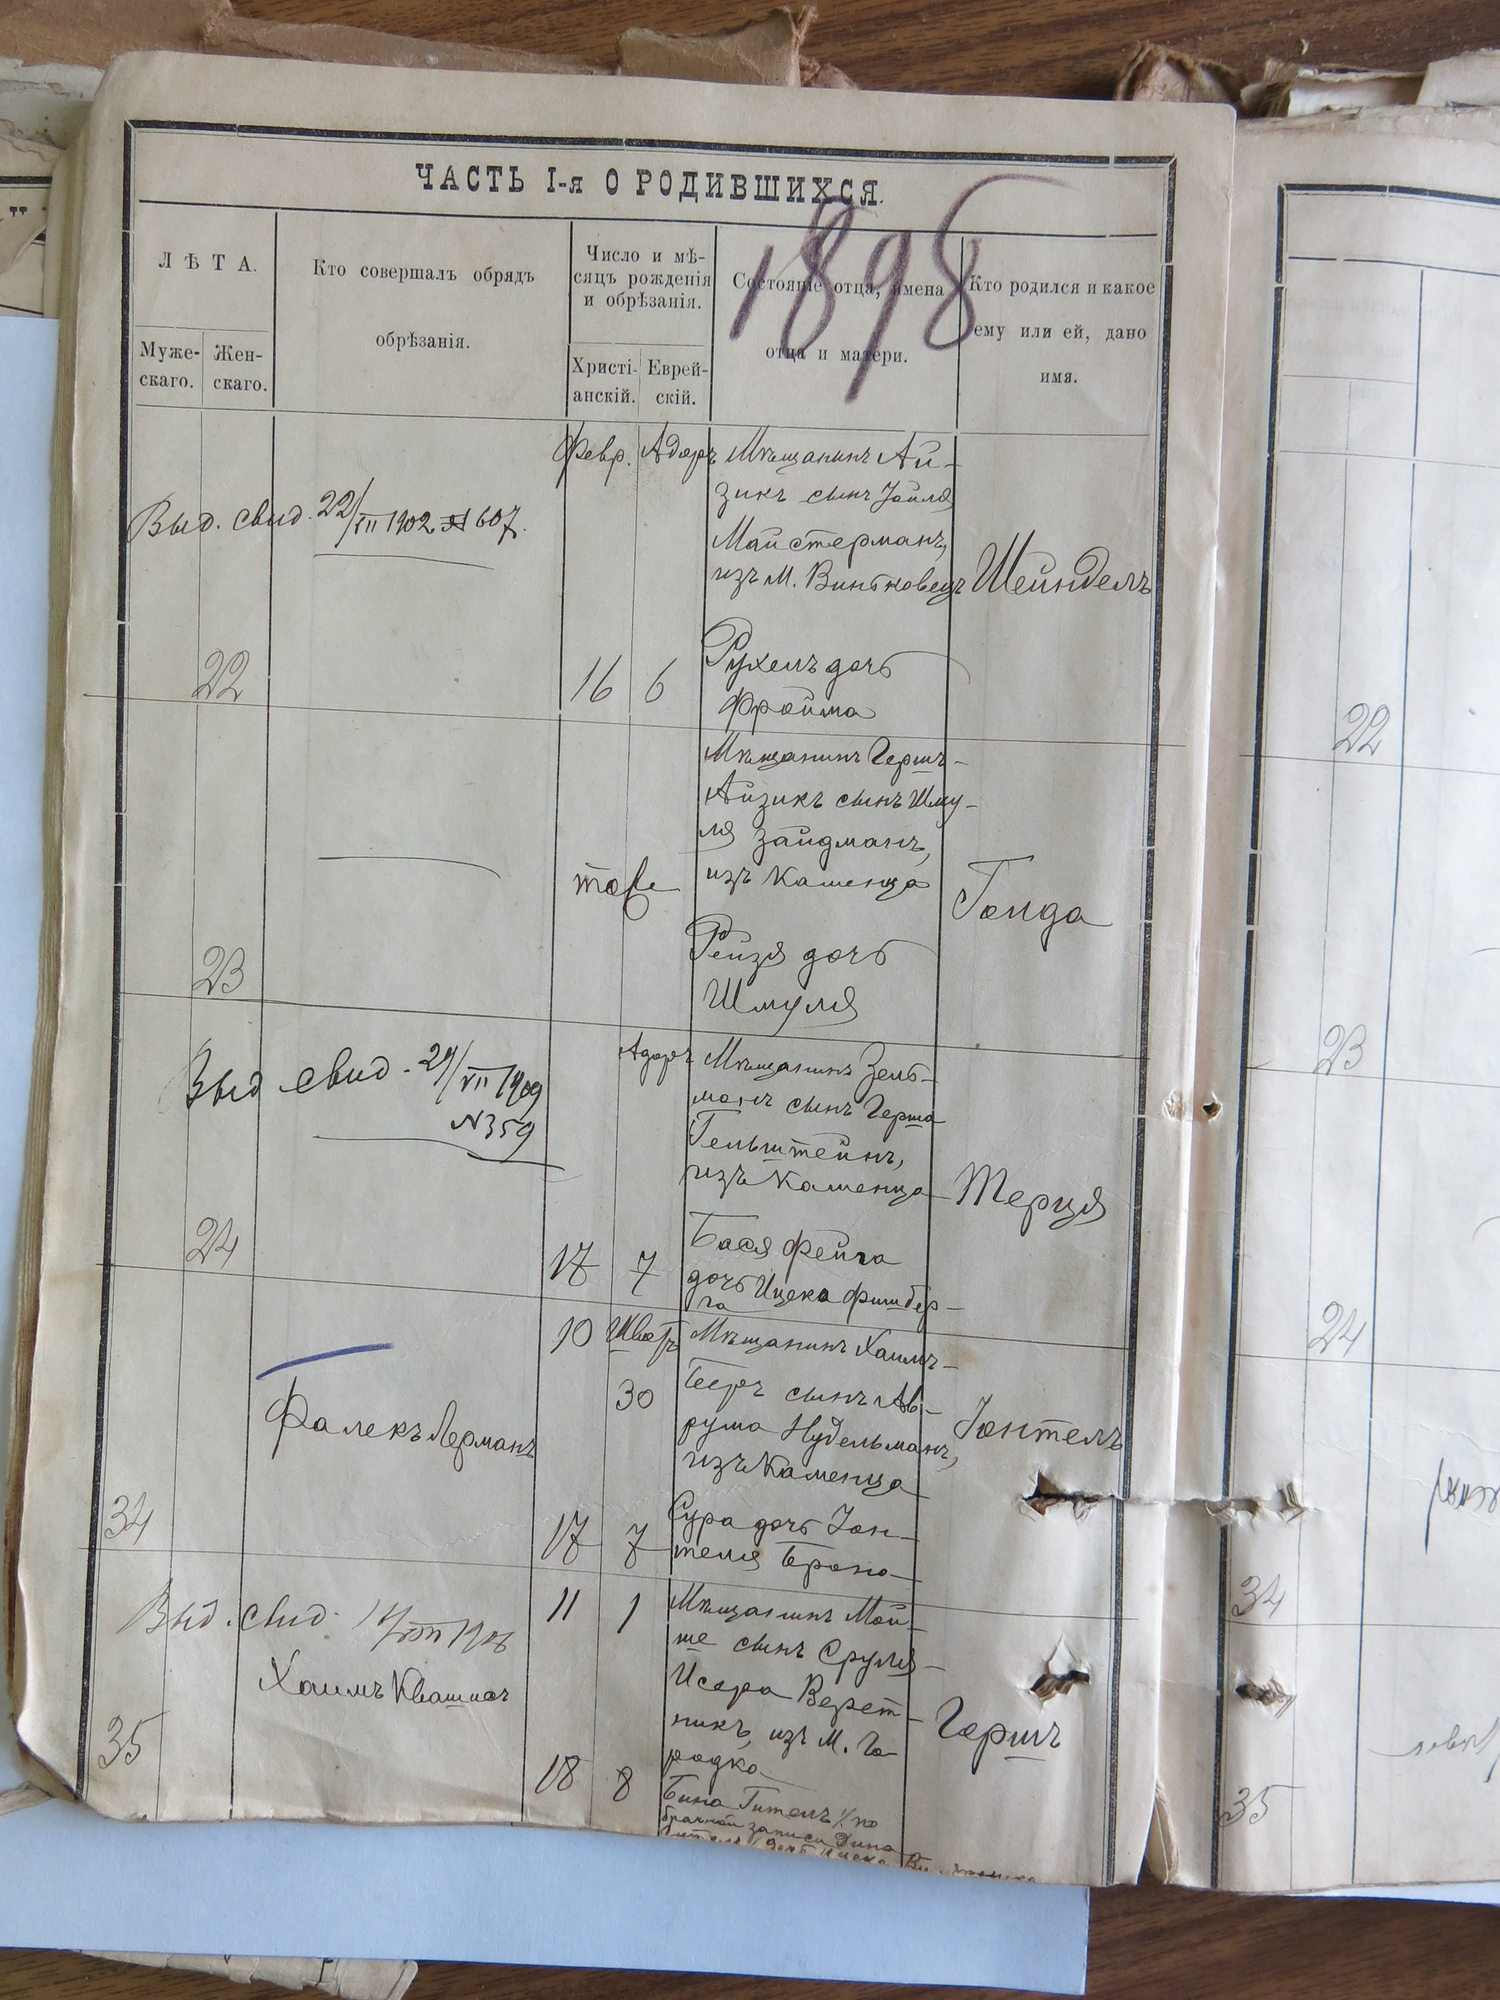 ЧАСТЬ I-я О РОДИВШИХСЯ.
1898
ЛѢТА.
Муже-
скаго.
Жен-
скаго.
Кто совершалъ обрядъ
обрѣзанія.
Число и мѣ-
сяцъ рожденія
и обрѣзанія.
Христі-
анскій.
Еврей-
скій.
Состояніе отца, имена
отца и матери.
Кто родился и какое
ему или ей, дано
имя.
Выд. свид. 22/VII 1902 № 607.
22
Февр.
Адаръ
16
6
Мѣщанинъ Ай-
зикъ сынъ Іойля
Майстерманъ,
изъ м. Виньковецъ
Рухель дочь
Фройма
Шейндель
23
тоже
Мѣщанинъ Гершъ-
Айзикъ сынъ Шму-
ля Зайдманъ,
изъ Каменца
Рейзя дочь
Шмуля
Гольда
Выд свид. 29/VII 1909
N359
24
Адаръ
17
7
Мѣщанинъ Зель-
манъ сынъ Герша
Гельштейнъ,
изъ Каменца
Бася Фейга
дочь Ицека Фишбер-
га
Терця
34
Фалекъ Лерманъ
10
Шватъ
30
17
7
Мѣщанинъ Хаимъ-
Беръ сынъ Ав-
рума Нудельманъ,
изъ Каменца
Сура дочь Іон-
теля
Іонтель
Выд. свид.
35
Хаимъ Квашнас
11
1
18
8
Мѣщанинъ Мой-
ше сынъ Сруля-
Исера Верет-
никъ, изъ м. Го-
родка
Бина Гитель \по
брачной записи Дина
Гершъ
22
23
24
34
35